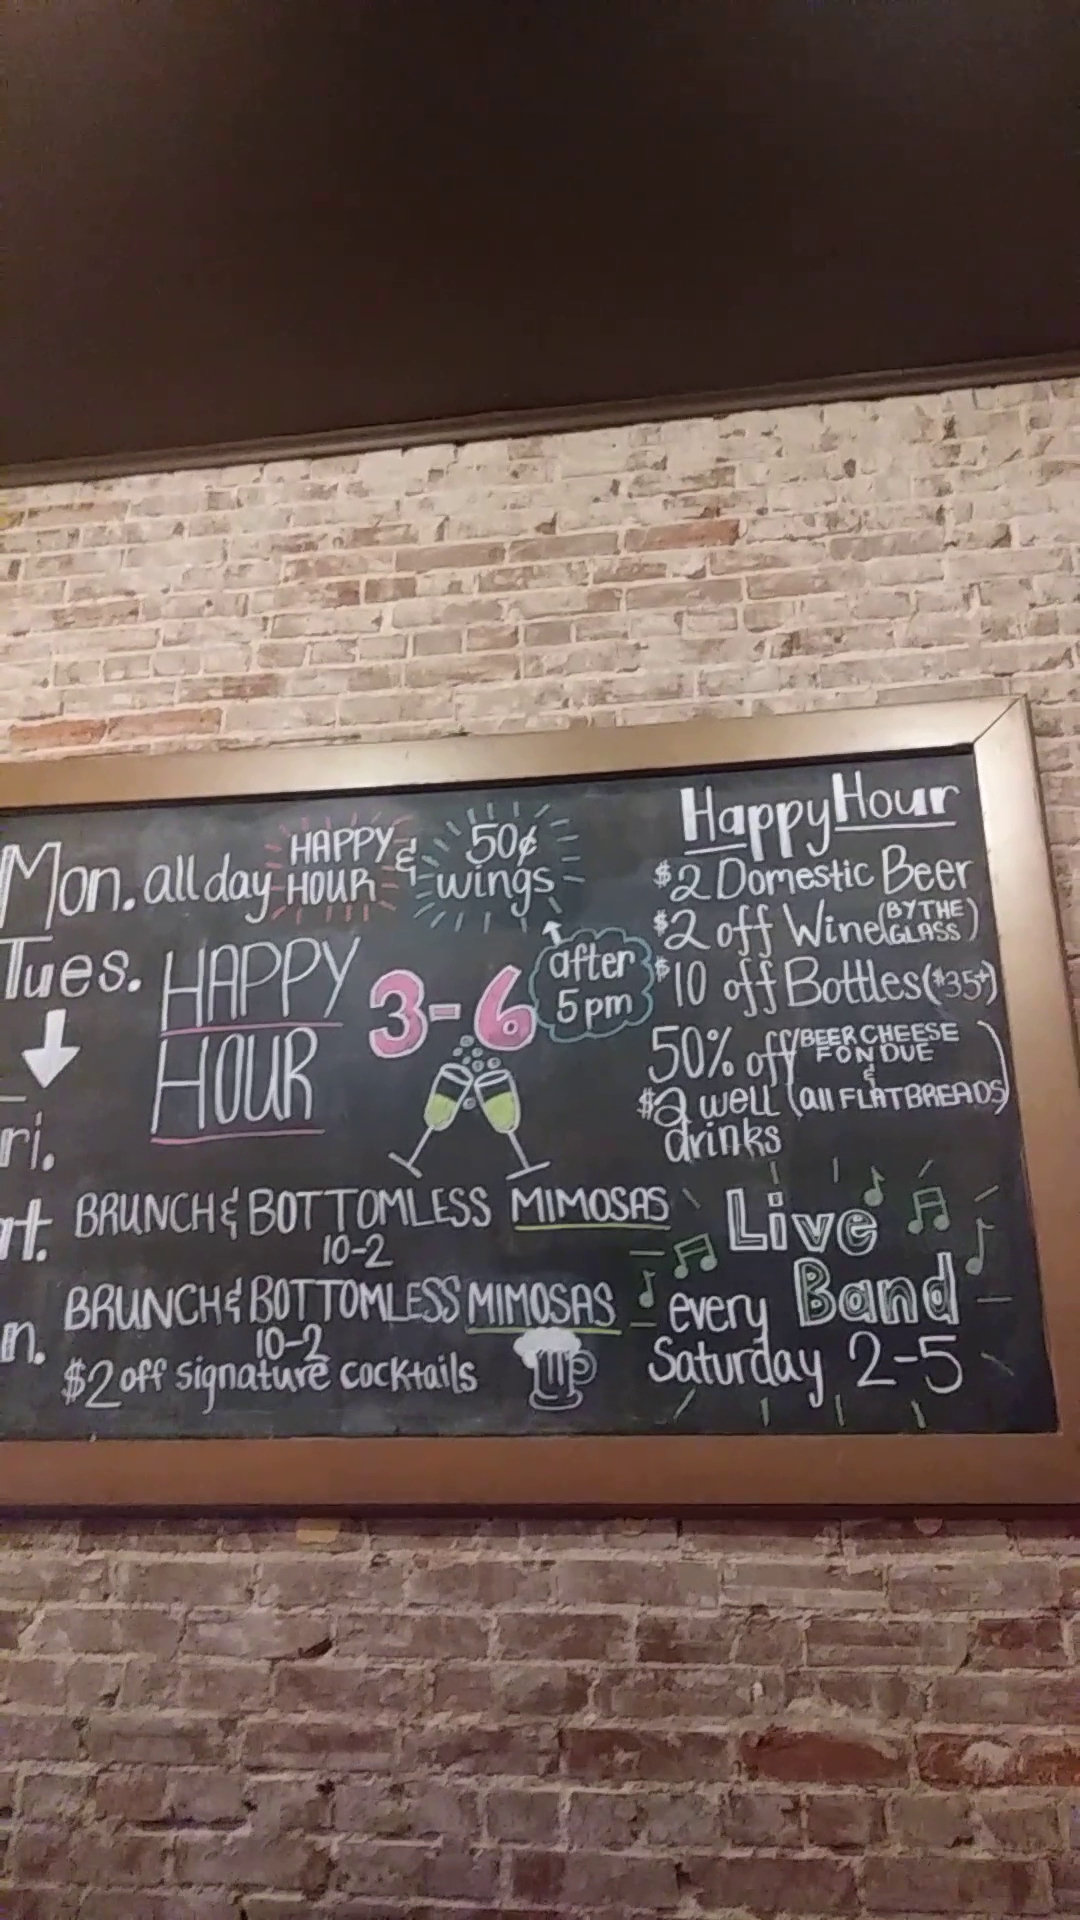 Mon. all day HAPPY HOUR & 50¢ wings
after 5pm
Tues.
ri.
HAPPY HOUR 3-6
at. BRUNCH & BOTTOMLESS MIMOSAS
10-2
n. BRUNCH & BOTTOMLESS MIMOSAS
10-2
$2 off signature cocktails
Happy Hour
$2 Domestic Beer
$2 off Wine (BY THE GLASS)
$10 off Bottles ($35+)
50% off (BEER CHEESE FONDUE & all FLATBREADS)
$2 well drinks
Live Band
every Saturday 2-5